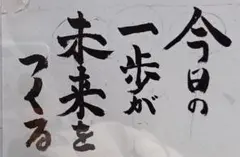 今日の
一歩が
未来を
つくる